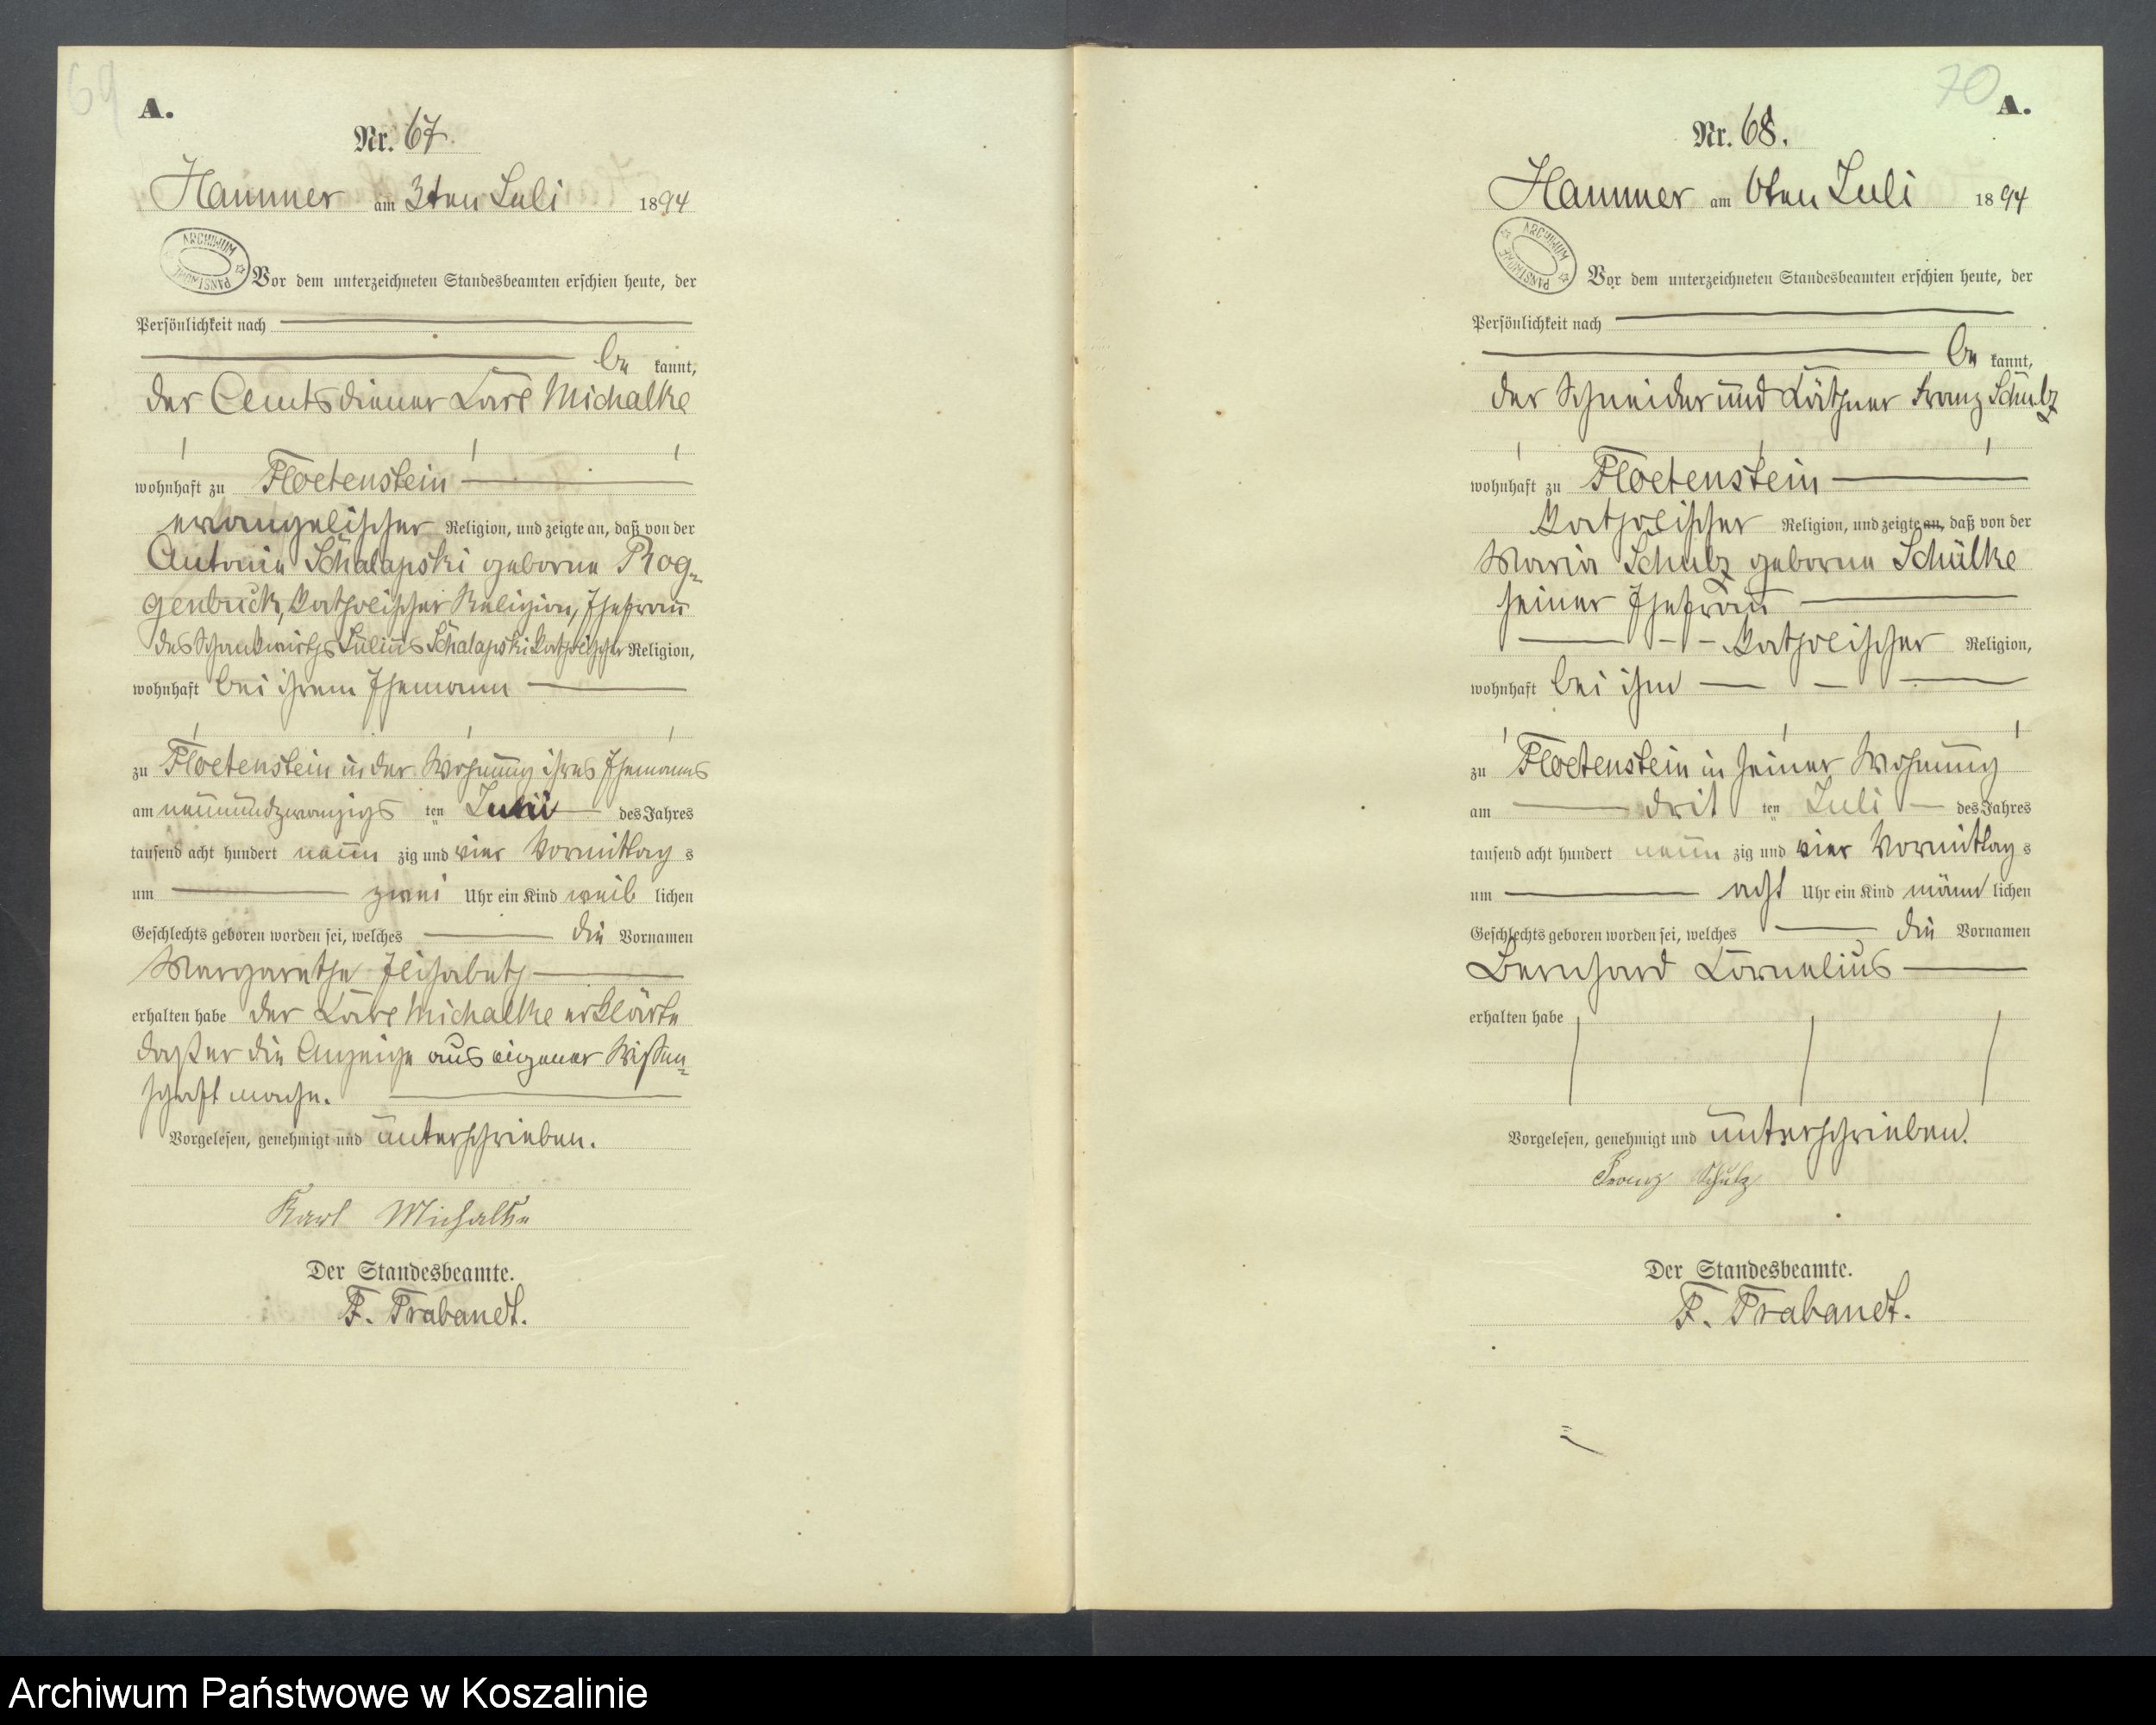 69
A.
Nr. 67.
Hammer am 3ten Juli 1894
ARCHIWUM PAŃSTWOWE
Vor dem unterzeichneten Standesbeamten erschien heute, der
Persönlichkeit nach
be kannt,
der Amtsdiener Karl Michalke
wohnhaft zu Floetenstein
evangelischer Religion, und zeigte an, daß von der
Antonie Schalapski geborne Rog-
genbuck, katholischer Religion, Ehefrau
des Schankwirths Julius Schalapski katholischer Religion,
wohnhaft bei ihrem Ehemann
zu Floetenstein in der Wohnung ihres Ehemanns
am neunundzwanzigs ten Juni des Jahres
tausend acht hundert neun zig und vier Vormittag s
um zwei Uhr ein Kind weib lichen
Geschlechts geboren worden sei, welches die Vornamen
Margarethe Elisabeth
erhalten habe der Karl Michalke erklärte
daß er die Anzeige aus eigener Wissen-
schaft mache.
Vorgelesen, genehmigt und unterschrieben.
Karl Michalke
Der Standesbeamte.
F. Trabandt.
70
A.
Nr. 68.
Hammer am 6ten Juli 1894
ARCHIWUM PAŃSTWOWE
Vor dem unterzeichneten Standesbeamten erschien heute, der
Persönlichkeit nach
be kannt,
der Schneider und Käthner Franz Schulz
wohnhaft zu Floetenstein
katholischer Religion, und zeigte an, daß von der
Maria Schulz geborne Schülke
seiner Ehefrau
katholischer Religion,
wohnhaft bei ihm
zu Floetenstein in seiner Wohnung
am drit ten Juli des Jahres
tausend acht hundert neun zig und vier Vormittag s
um acht Uhr ein Kind männ lichen
Geschlechts geboren worden sei, welches die Vornamen
Bernhard Cornelius
erhalten habe
Vorgelesen, genehmigt und unterschrieben.
Franz Schulz
Der Standesbeamte.
F. Trabandt.
Archiwum Państwowe w Koszalinie